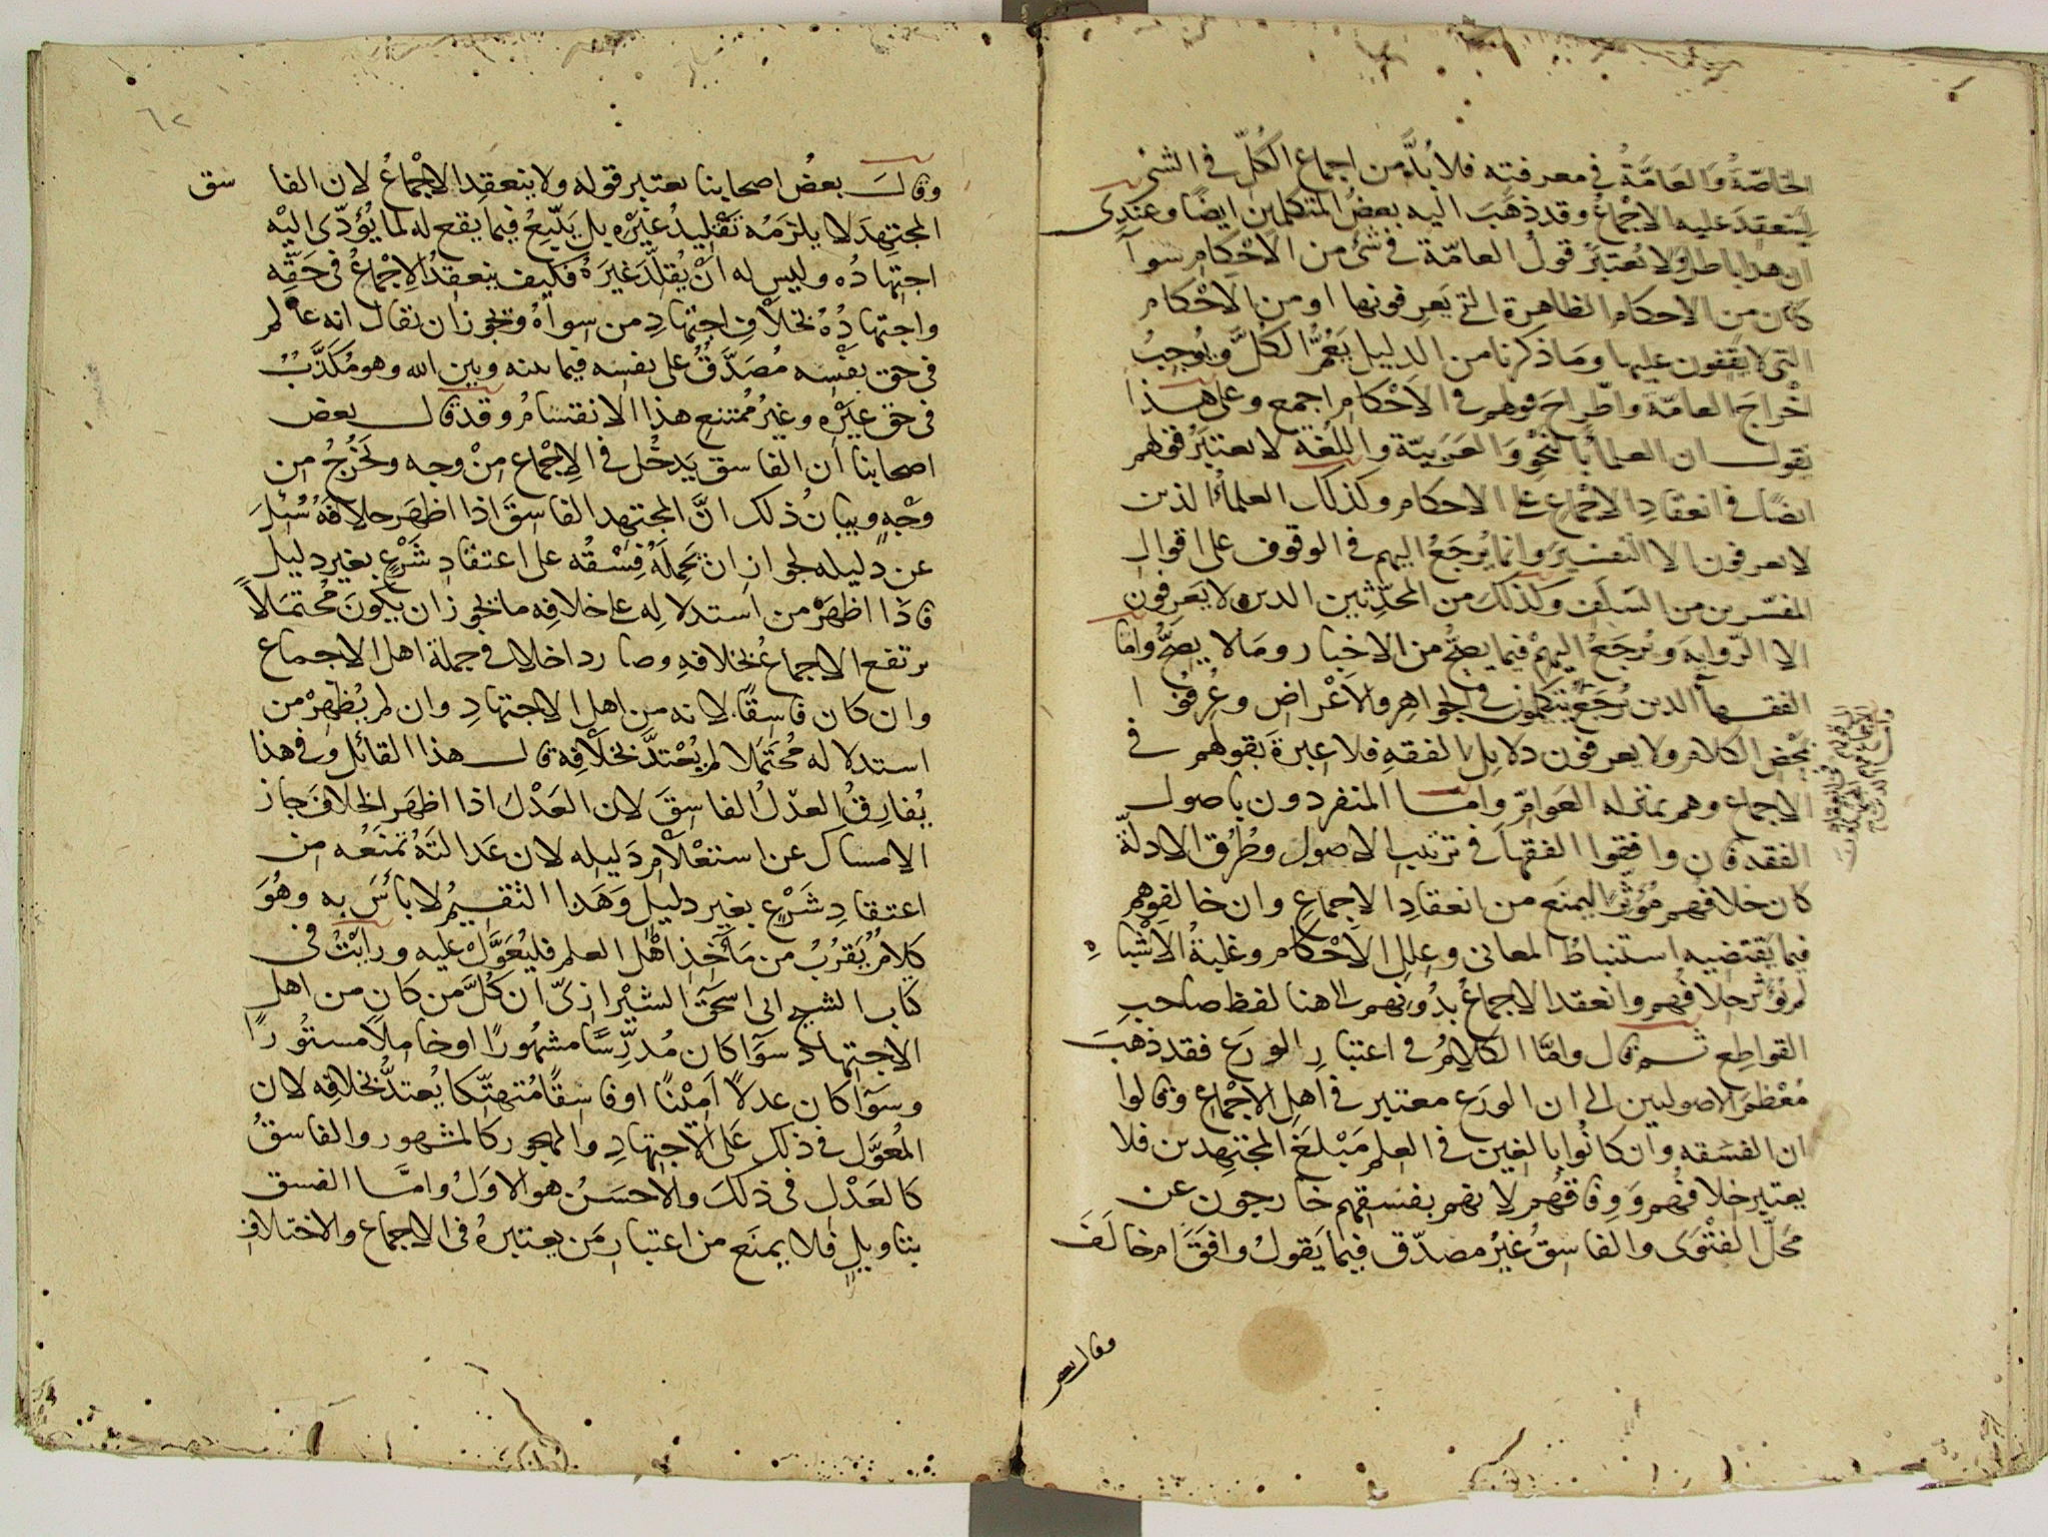 الخاصّةُ وَالعَامَّةُ في معرفته فلا بُدَّ من اجماع الكُلّ في الشئ
لينعقدَ عليه الاجْماعُ وقد ذهَبَ اليه بعضُ المتكلمين ايضًا وعندى
ان هذا باطل ولا يُعتبَرُ قولُ العامّة في شئ من الاحْكامِ سَوآ
كان من الاحكام الظاهرة التي يَعرفونها او من الاحْكام
التى لا يقفون عليها ومَا ذكرنا من الدليل يَعُمُّ الكلَّ ويُوجبُ
اخراجَ العامّة واطّراحَ قولهم في الاَحْكام اجمع وعلى هذا
نقول ان العلمآ بالنحْو وَالعَرَبيّة واللغة لا يعتبرُ قولهم
ايضًا في انعقادِ الاجْماعِ على الاحكام وكذلك العلمآءُ الذين
لا يعرفون الا التفسيرَ وانما يُرجَعُ اليهم في الوقوف على اقوال
المفسّرين من السَلَف وكذلكَ من المحدّثين الذين لا يَعرفون
الا الرّوايةَ ويُرجَعُ اليهمْ فيما يصحّ من الاخبار ومَا لا يصحُّ وامّا
الفقهآ الذين يُرجَعُ يتكلمون في الجواهِرِ والاَعْراضِ وعُرفُوا
بمحْض الكلام ولا يعرفون دلايل الفقهِ فلا عبرةَ بقولهم في
الاجماع وهم بمنزله العَوامّ وامّا المنفردون باصول
الفقه فان وافقوا الفقهآ في ترتيب الاصول وطُرُق الادلّة
كان خلافهم مُؤثّرًا يمنَع من انعقادِ الاجماعِ وان خالفوهم
فيما يقتضيه استنباطُ المعانى وعلل الاَحْكام وغلبةُ الاَشْباهِ
لم يُؤثر خلافُهم وانعقد الاجماعُ بدُونهم الى هنا لفظ صاحب
القواطِع ثم قال وامّا الكلامُ في اعتبارِ الورَع فقد ذهَبَ
مُعْظمُ الاصوليين الى ان الورَع معتبر في اهلِ الاجْماعِ وقالوا
ان الفسَقه وان كانُوا بالغين في العلم مَبْلغَ المجتهدين فلا
يعتبر خلافُهم وَوِفاقهُم لانهم بفسقهم خارجون عن
مَحَلّ الفتْوَى والفاسقُ غيرُ مصدّق فيما يَقولُ وافقَ ام خالَفَ
وقال بعض
٦٢
وقالَ بعضُ اصحابنا يعتبر قوله ولا ينعقد الاجْماعُ لان الفاسق
المجتهدَ لا يلزمُه تقْليدُ غيْره بل يَتّبِعُ فيما يقع له لما يُؤدّى اليْه
اجتهادُه وليس له انْ يُقلّدَ غيرَهُ فكيف ينعقدُ الاجْماعُ في حَقّه
واجتهادُهُ بخلافِ اجتهادِ من سواهُ ويجوز ان يقال انه عالم
فى حق نفْسه مُصَدَّقٌ على نفسه فيما بينه وبين الله وهو مُكذَّبٌ
فى حق غيْره وغيرُ مُمتنع هذا الانقسامُ وقد قال بعض
اصحابنا ان الفاسق يَدخُل في الاجْماع منْ وجه ويَخْرُجُ من
وجْهٍ وبيانُ ذلك انَّ المجتهد الفاسِقَ اذا اظهَر خلافهُ سُئِلَ
عن دليله لجواز ان يحملَهُ فِسْقُه على اعتقادِ شَرْعٍ بغير دليل
فاذا اظهَرْ من استدلالِه على خلافِه ما يجوز ان يكونَ مُحتمَلاً
يرتفع الاجماعُ بخلافِهِ وصار داخلا في جملة اهل الاجماع
وان كان فاسِقًا لانه من اهل الاجتهادِ وان لم يُظهِرْ من
استدلاله مُحتَمَلا لم يُعْتدَّ بخلافِه قال هذا القائل وفى هذا
يُفارِقُ العدْلُ الفاسِقَ لان العَدْلَ اذا اظهَر الخلافَ جاز
الامساك عن استعْلام دَليله لان عَدالتَهُ تمنَعُه من
اعتقادِ شَرْعٍ بغير دليل وَهَذا التقسيمُ لا بأسَ به وهُوَ
كلامٌ يَقرُبُ من مَأخذ اهْل العلم فليُعَوَّلْ عليه ورايْتُ فى
كتاب الشيخ ابى اسحَق الشيْرازىّ ان كُلَّ من كان من اهل
الاجتهاد سَوَآ كان مُدرّسًا مشهُورًا او خاملاً مستُورًا
وسَوَآ كان عدلاً اَمِيْنًا او فاسِقًا مُتهتّكا يُعتدُّ بخلافِه لان
المُعوَّل في ذلك عَلَى الاجتهادِ والمهجور كالمشهور والفاسقُ
كالعَدْلِ فى ذلكَ والاحسَنُ هو الاوّلُ وامَّا الفسق
بتاويلٍ فلا يمنَع من اعتبارِ مَن يعتبرهُ فى الاجماع والاختلافِ